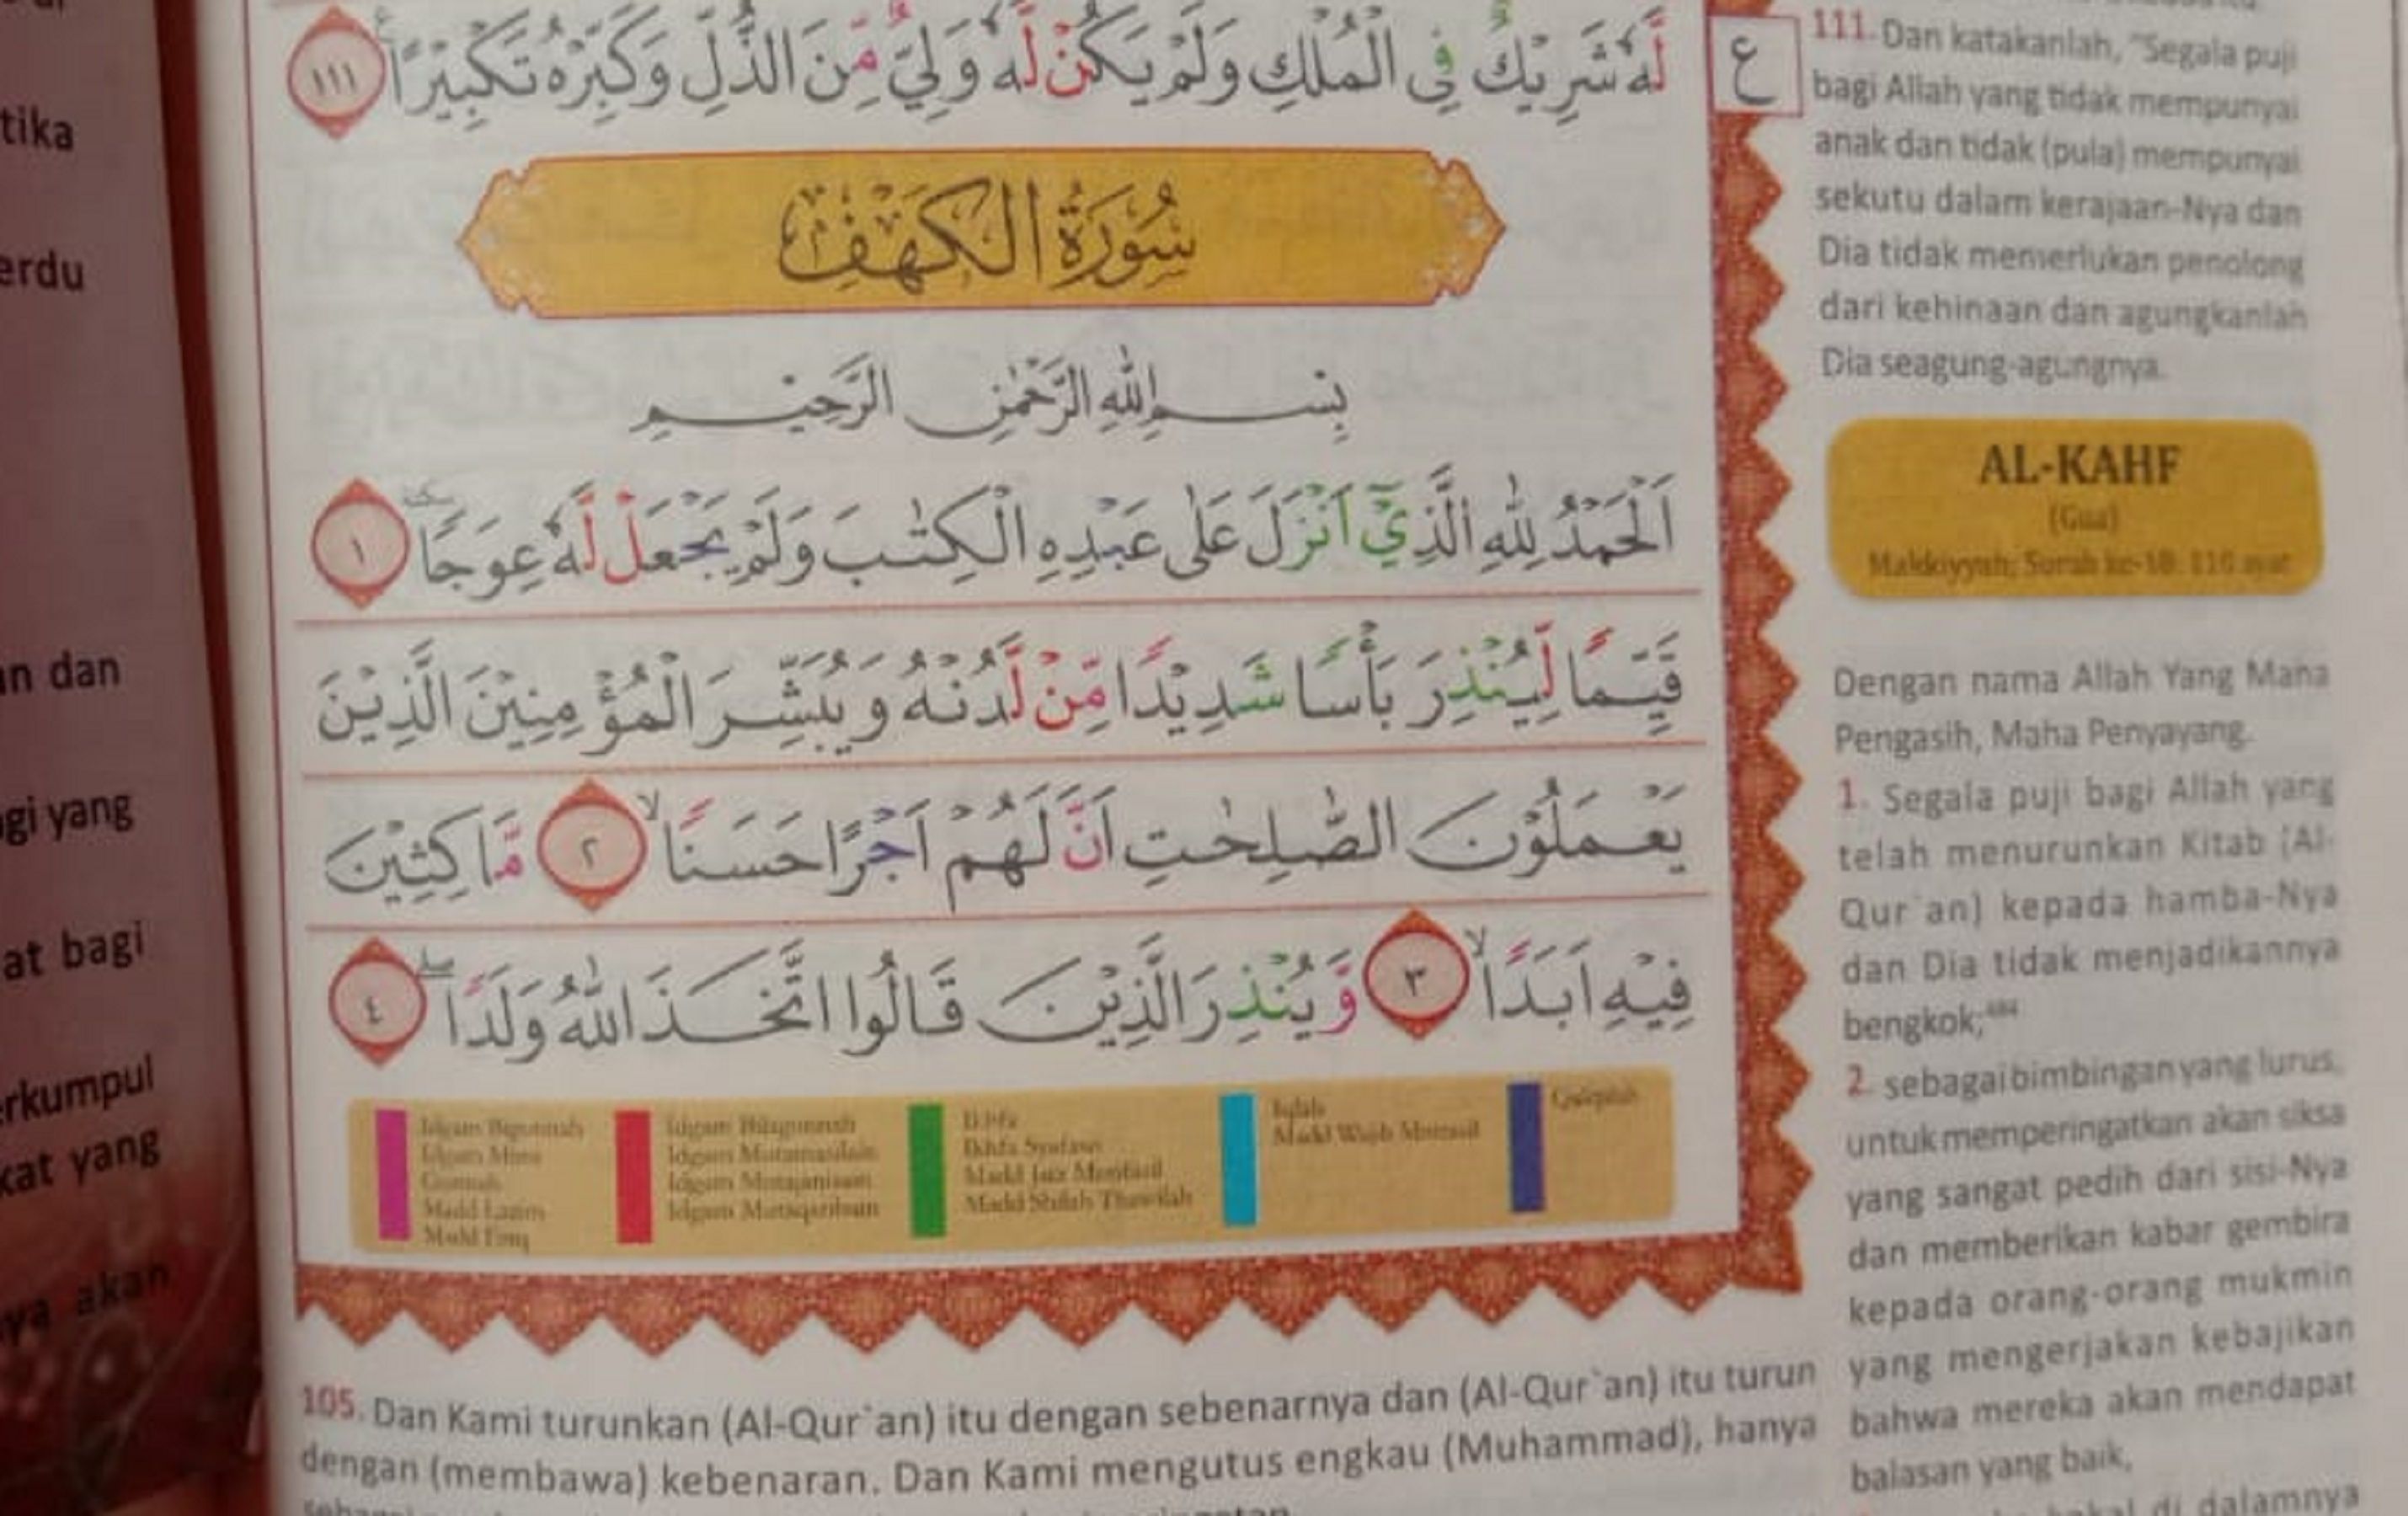 لَّهٗ شَرِيْكٌ فِى الْمُلْكِ وَلَمْ يَكُنْ لَّهٗ وَلِيٌّ مِّنَ الذُّلِّ وَكَبِّرْهُ تَكْبِيْرًا ࣖ ١١١
ع
سُوْرَةُ الْكَهْفِ
بِسْمِ اللّٰهِ الرَّحْمٰنِ الرَّحِيْمِ
اَلْحَمْدُ لِلّٰهِ الَّذِيْٓ اَنْزَلَ عَلٰى عَبْدِهِ الْكِتٰبَ وَلَمْ يَجْعَلْ لَّهٗ عِوَجًا ۜ ١
قَيِّمًا لِّيُنْذِرَ بَأْسًا شَدِيْدًا مِّنْ لَّدُنْهُ وَيُبَشِّرَ الْمُؤْمِنِيْنَ الَّذِيْنَ
يَعْمَلُوْنَ الصّٰلِحٰتِ اَنَّ لَهُمْ اَجْرًا حَسَنًاۙ ٢ مَّاكِثِيْنَ
فِيْهِ اَبَدًاۙ ٣ وَّيُنْذِرَ الَّذِيْنَ قَالُوا اتَّخَذَ اللّٰهُ وَلَدًاۖ ٤
Idgam Bigunnah
Idgam Mimi
Gunnah
Madd Lazim
Madd Farq
Idgam Bilagunnah
Idgam Mutamasilain
Idgam Mutajanisain
Idgam Mutaqaribain
Ikhfa
Ikhfa Syafawi
Madd Jaiz Munfasil
Madd Shilah Thawilah
Iqlab
Madd Wajib Muttasil
Qalqalah
105. Dan Kami turunkan (Al-Qur`an) itu dengan sebenarnya dan (Al-Qur`an) itu turun
dengan (membawa) kebenaran. Dan Kami mengutus engkau (Muhammad), hanya
111. Dan katakanlah, "Segala puji
bagi Allah yang tidak mempunyai
anak dan tidak (pula) mempunyai
sekutu dalam kerajaan-Nya dan
Dia tidak memerlukan penolong
dari kehinaan dan agungkanlah
Dia seagung-agungnya.
AL-KAHF
(Gua)
Makkiyyah; Surah ke-18: 110 ayat
Dengan nama Allah Yang Maha
Pengasih, Maha Penyayang.
1. Segala puji bagi Allah yang
telah menurunkan Kitab (Al-
Qur`an) kepada hamba-Nya
dan Dia tidak menjadikannya
bengkok;
2. sebagai bimbingan yang lurus,
untuk memperingatkan akan siksa
yang sangat pedih dari sisi-Nya
dan memberikan kabar gembira
kepada orang-orang mukmin
yang mengerjakan kebajikan
bahwa mereka akan mendapat
balasan yang baik,
di dalamnya
tika
erdu
un dan
gi yang
at bagi
erkumpul
kat yang
ya akan